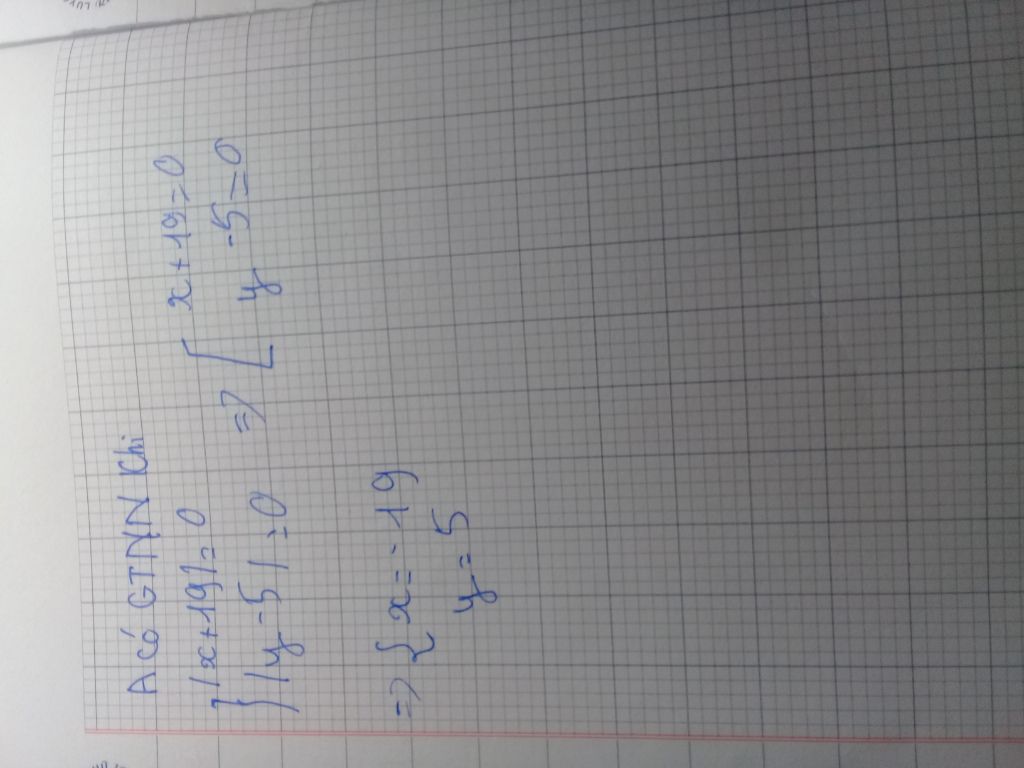 A có GTNN khi
{ |x+19|= 0
|y-5|=0 => [ x+19=0
y-5=0
=> { x=-19
y= 5